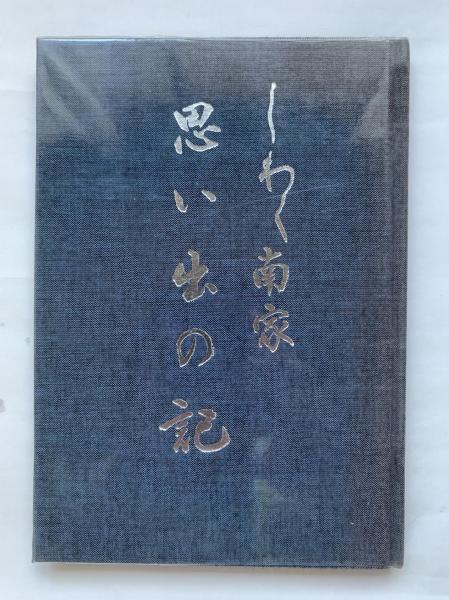 しわく南家
思い出の記